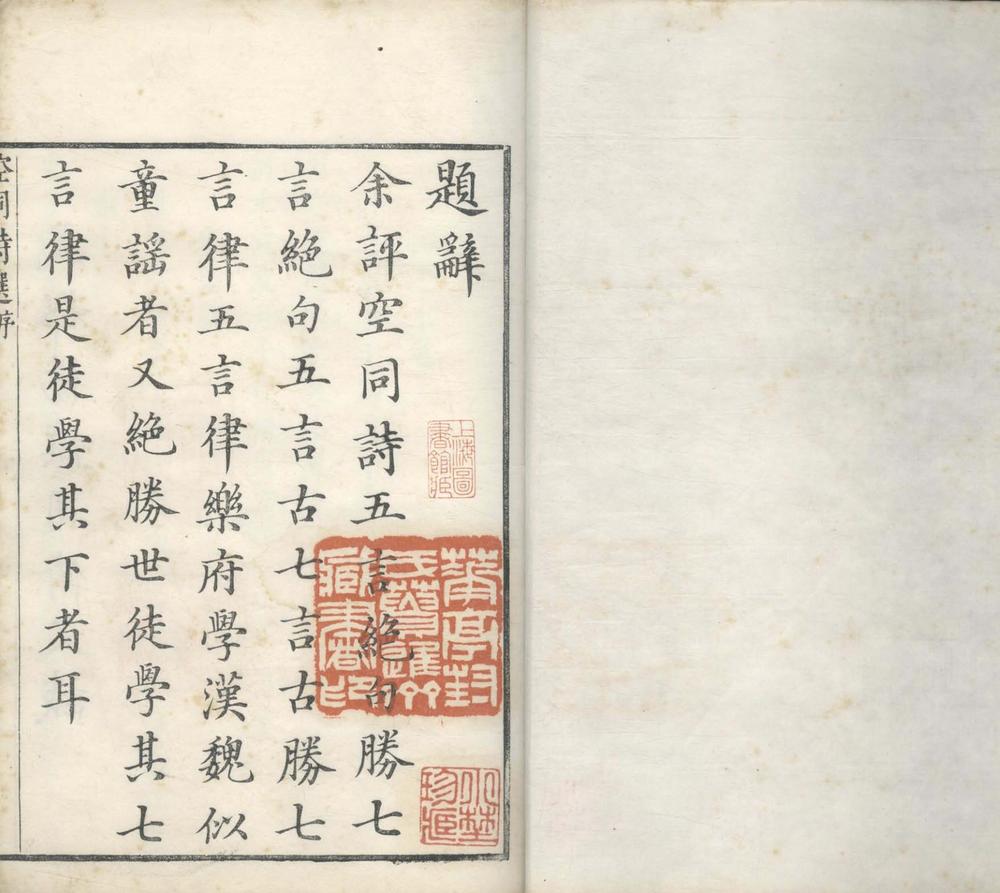 題辭
余評空同詩五言絶句勝七
言絶句五言古七言古勝七
言律五言律樂府學漢魏似
童謡者又絶勝世徒學其七
言律是徒學其下者耳
空同詩選序
上海圖
書館藏
華亭封
氏簣進
藏書印
珍藏